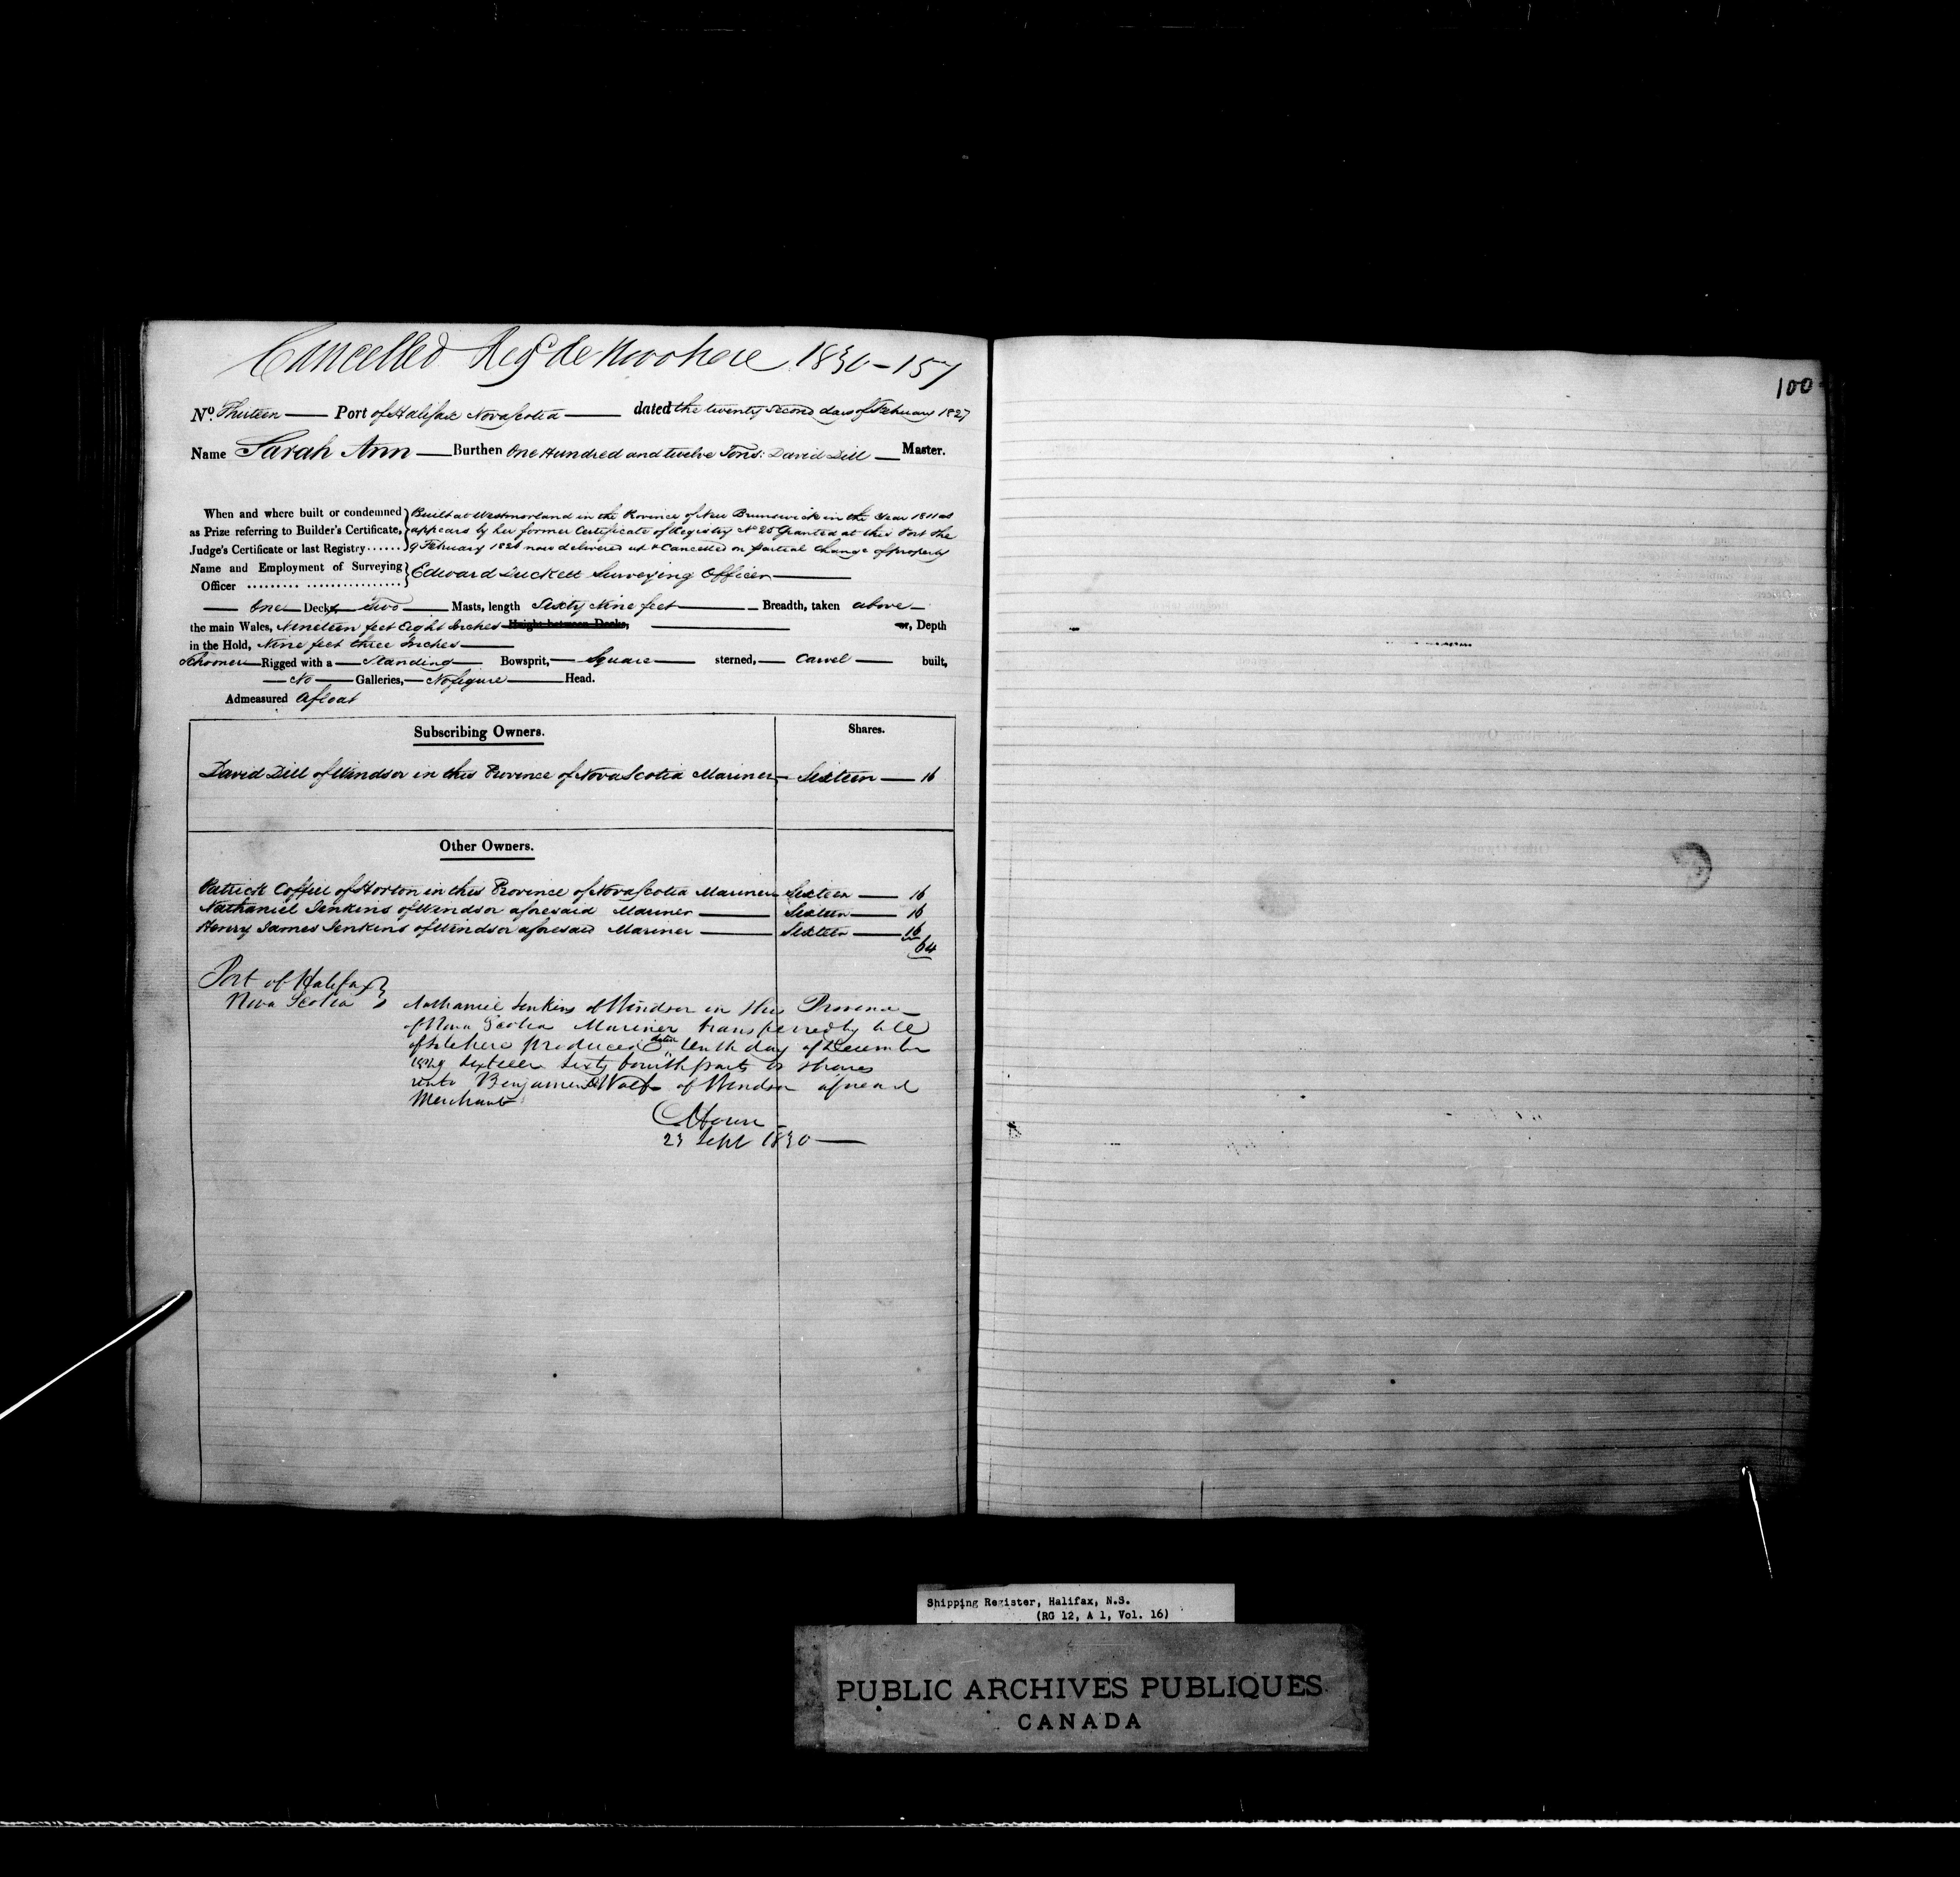 Cancelled Regd de Novo here 1830-157
No. Thirteen Port of Halifax Nova Scotia dated the twenty second day of February 1827
Name Sarah Ann Burthen One Hundred and twelve Tons: David Dill Master.
When and where built or condemned as Prize referring to Builder's Certificate, Judge's Certificate or last Registry......
Built at Westmorland in the Province of New Brunswick in the Year 1811 as
appears by her former Certificate of Registry No 25 Granted at this Port the
9 February 1826 now delivered up & Cancelled on partial Change of property
Name and Employment of Surveying Officer ......... ..................
Edward Duckett Surveying Officer
One Decks Two Masts, length Sixty Nine feet Breadth, taken above
the main Wales, Nineteen feet Eight Inches Height between Decks, or, Depth
in the Hold, Nine feet three Inches
Schooner Rigged with a Standing Bowsprit, Square sterned, Carvel built,
No Galleries, No figure Head.
Admeasured Afloat
Subscribing Owners. Shares.
David Dill of Windsor in this Province of Nova Scotia Mariner Sixteen 16
Other Owners.
Patrick Coffill of Horton in this Province of Nova Scotia Mariner Sixteen 16
Nathaniel Jenkins of Windsor aforesaid Mariner Sixteen 16
Henry James Jenkins of Windsor aforesaid Mariner Sixteen 16
64
Port of Halifax
Nova Scotia
Nathaniel Jenkins of Windsor in this Province
of Nova Scotia Mariner transferred by bill
of sale here produced dated tenth day of December
1829 sixteen sixty fourth parts or shares
unto Benjamin Wolf of Windsor aforesaid
Merchant
23 Sept 1830
100
Shipping Register, Halifax, N.S.
(RG 12, A 1, Vol. 16)
PUBLIC ARCHIVES PUBLIQUES
CANADA